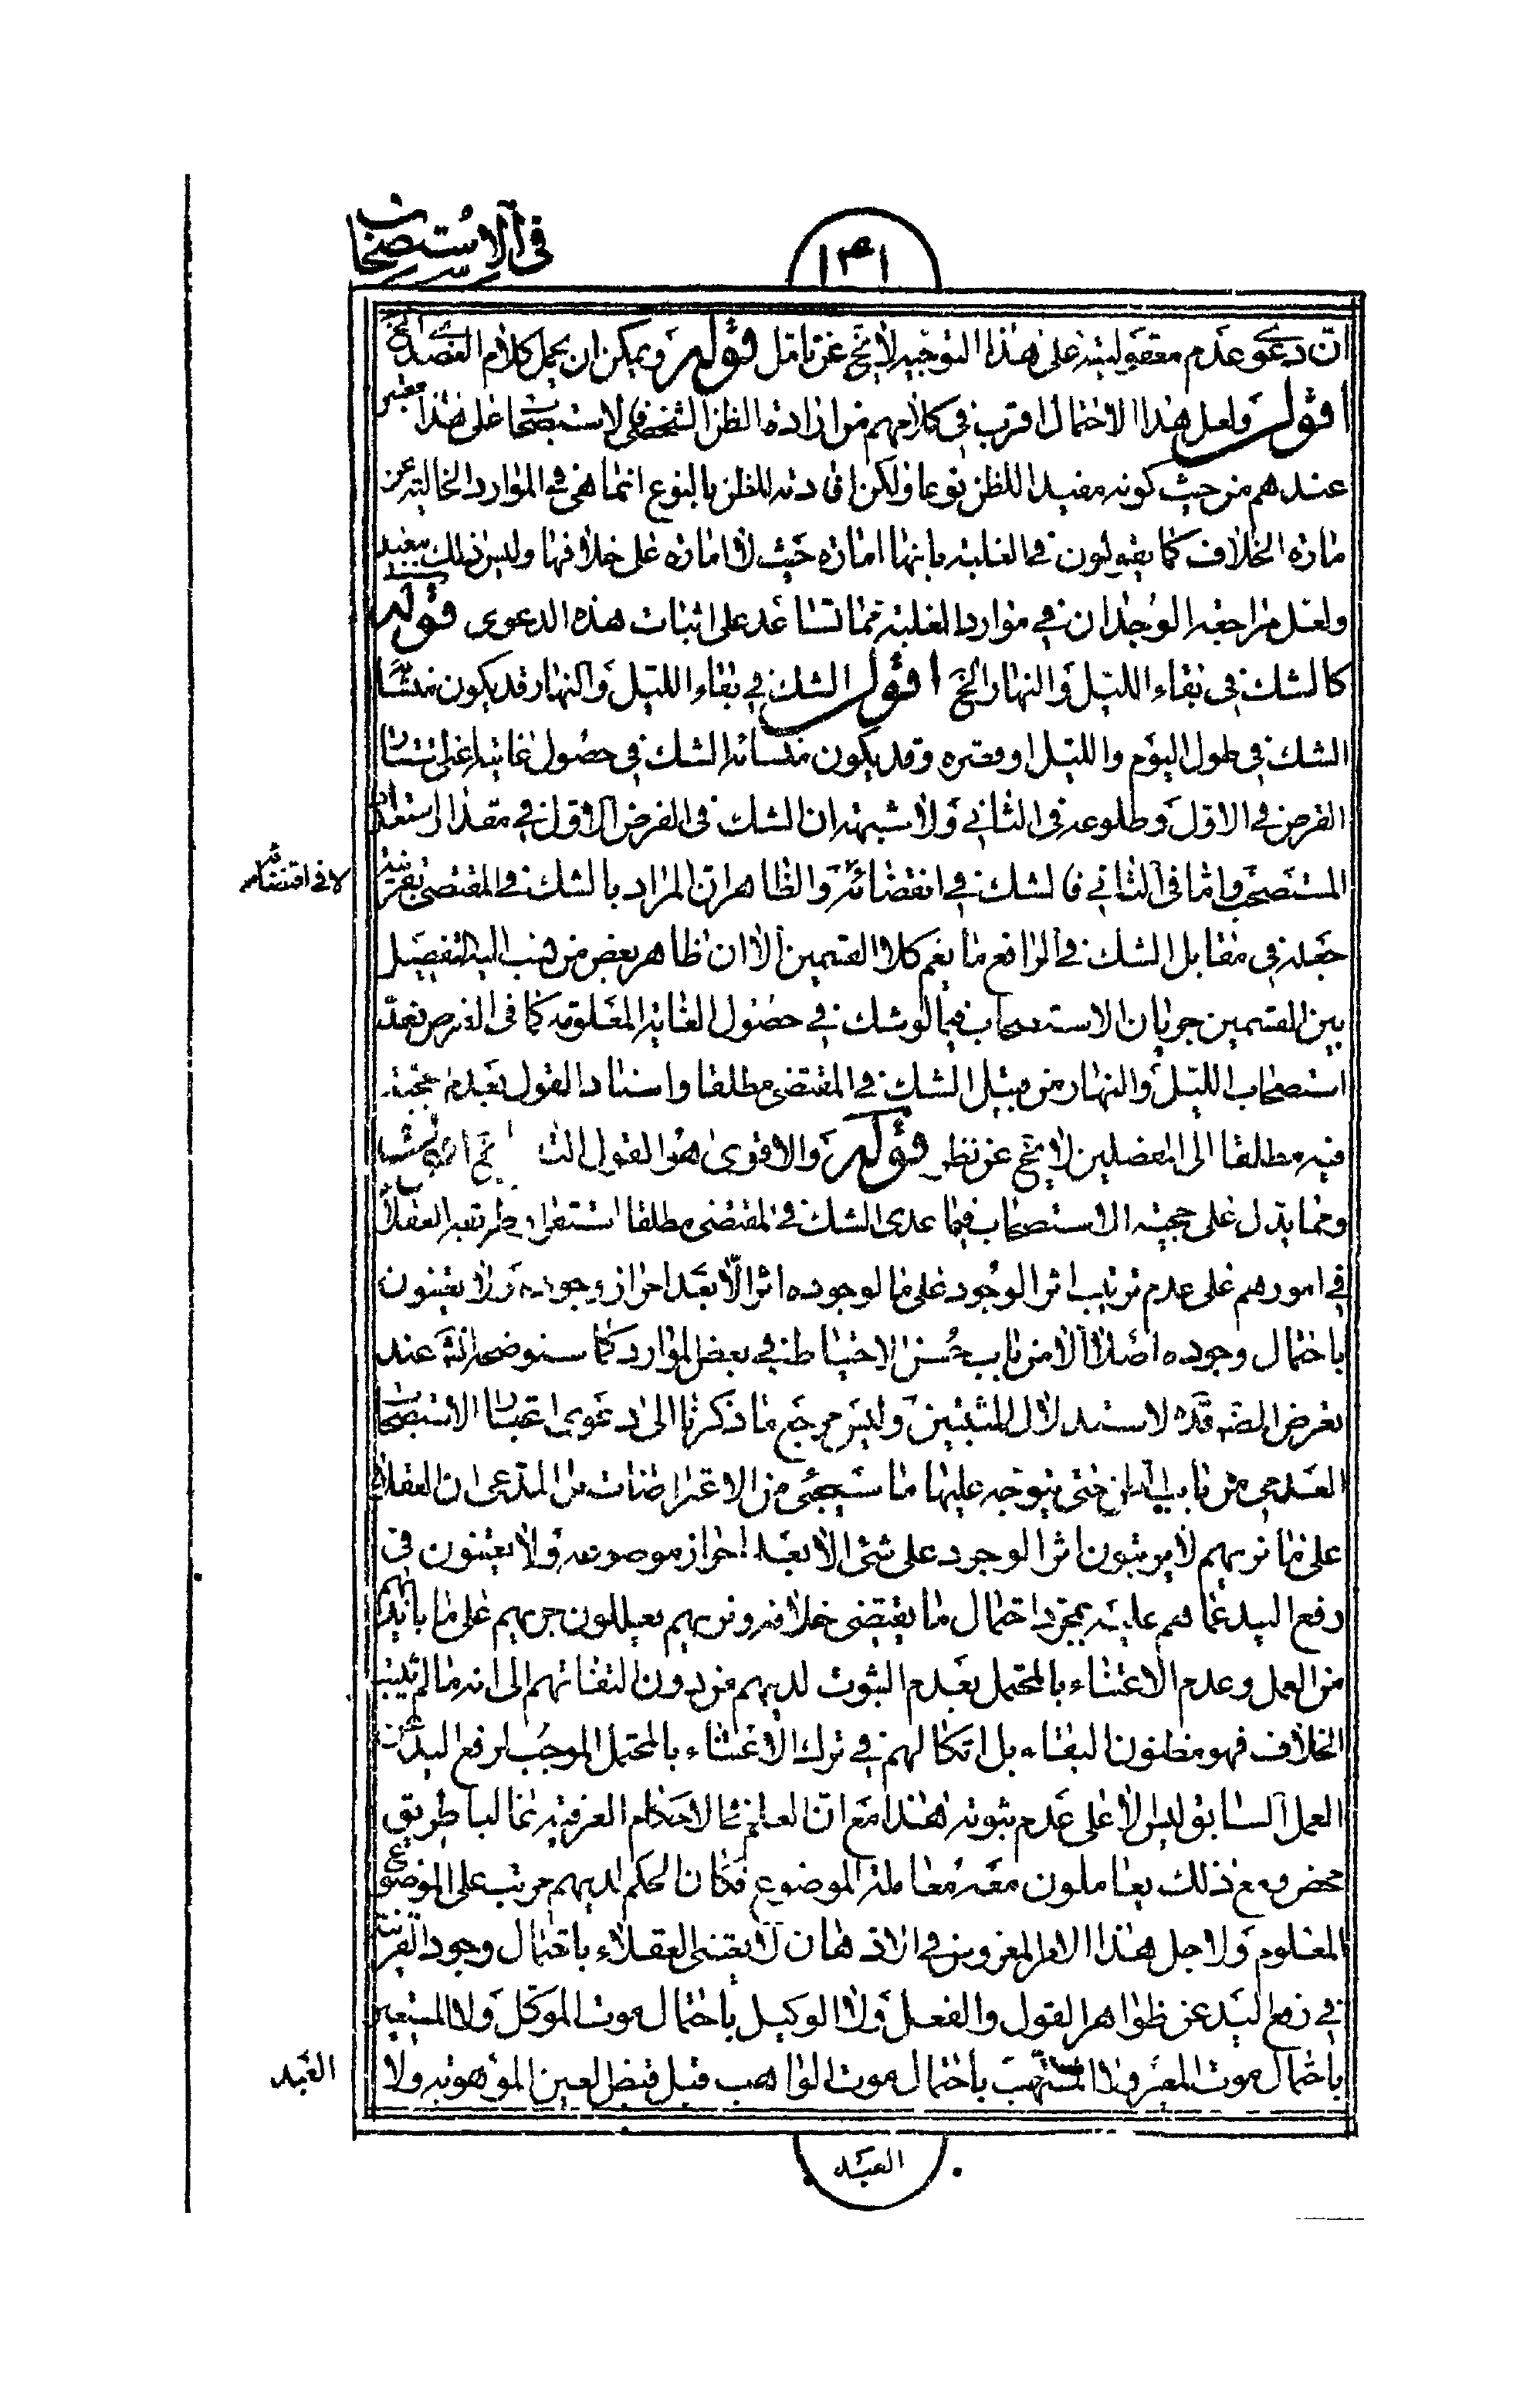 في الاستصحاب
١٣١
ان دعوى عدم معقوليته على هذا التوجيه لا يخ عن تامل قوله ويمكن ان يحمل كلام العضدى الخ
اقول ولعل هذا الاحتمال اقرب في كلامهم من ارادة الظن الشخصى فالاستصحاب على هذا معتبر
عندهم من حيث كونه مفيدا للظن نوعا ولكن افادته للظن بالنوع انما هى في الموارد الخالية عن
امارة الخلاف كما يقولون في الغلبة بانها امارة حيث لا امارة على خلافها وليس ذلك ببعيد
ولعل مراجعة الوجدان في موارد الغلبة مما تساعد على اثبات هذه الدعوى قوله
كالشك في بقاء الليل والنهار الخ اقول الشك في بقاء الليل والنهار قد يكون منشأه
الشك في طول اليوم والليل او قصره وقد يكون منشائه الشك في حصول غايته اعنى استتار
القرص في الاول وطلوعه في الثاني ولا شبهة ان الشك في الفرض الاول في مقدار استعداد
المستصحب واما في الثاني فالشك في انقضائه والظاهر ان المراد بالشك في المقتضى بقرينة
لا في اقتضائه
جعله في مقابل الشك في الرافع ما يعم كلا القسمين الا ان ظاهر بعض من نسب اليه التفصيل
بين القسمين جريان الاستصحاب فيما لو شك في حصول الغاية المعلومة كما في الفرض فعد
استصحاب الليل والنهار من قبيل الشك في المقتضى مطلقا واسناد القول بعدم حجية
فيه مطلقا الى المفصلين لا يخ عن نظر قوله والاقوى هو القول التا
ومما يدل على حجية الاستصحاب فيما عدى الشك في المقتضى مطلقا استقرار طريقة العقلاء
في امورهم على عدم ترتيب اثر الوجود على ما لوجوده اثر الا بعد احراز وجوده ولا يعتنون
باحتمال وجوده اصلا الا من باب حسن الاحتياط في بعض الموارد كما سنوضحه انش عند
تعرض المصه قده لاستدلال المثبتين وليس مرجع ما ذكرنا الى دعوى اعتبار الاستصحاب
العدمى من باب الظن حتى يتوجه عليها ما سيجئ من الاعتراضات بل المدعى ان العقلاء
على ما نريهم لا يرتبون اثر الوجود على شئ الا بعد احراز موضوعه ولا يعتنون في
رفع اليد عما هم عليه بمجرد احتمال ما يقتضى خلافه ونريهم يعللون جريهم على ما بايديهم
من العمل وعدم الاعتناء بالمحتمل بعدم الثبوت لديهم من دون التفاتهم الى انه ما لم يثبت
الخلاف فهو مظنون البقاء بل اتكالهم في ترك الاعتناء بالمحتمل الموجب لرفع اليد عن
العمل السابق ليس الا على عدم ثبوته هذا مع ان العلم في الاحكام العرفية غالبا طريق
محض ومع ذلك يعاملون معه معاملة الموضوع فكان الحكم لديهم مرتب على الموضوع
المعلوم ولاجل هذا الامر المغروس في الاذهان لا يعتنى العقلاء باحتمال وجود القرينة
في رفع اليد عن ظواهر القول والفعل ولا الوكيل باحتمال موت الموكل ولا المستعير
باحتمال موت المعير ولا المستهب باحتمال موت الواهب قبل قبض العين الموهوبة ولا
العبد
العبد